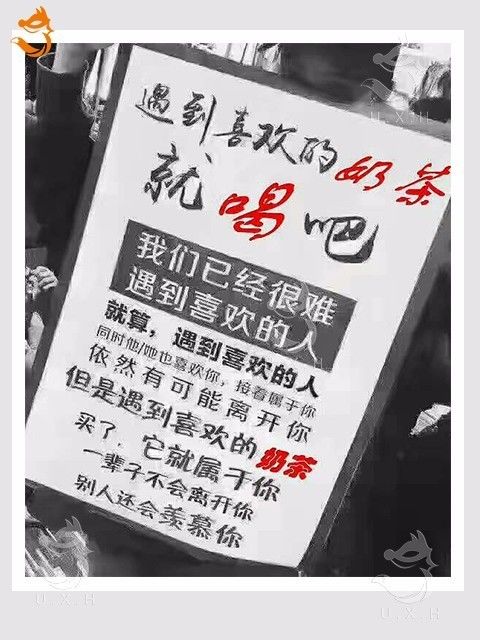 遇到喜欢的奶茶
就喝吧
我们已经很难
遇到喜欢的人
就算，遇到喜欢的人
同时他/她也喜欢你，接着属于你
依然有可能离开你
但是遇到喜欢的奶茶
买了，它就属于你
一辈子不会离开你
别人还会羡慕你
U.X.H
U.X.H
U.X.H